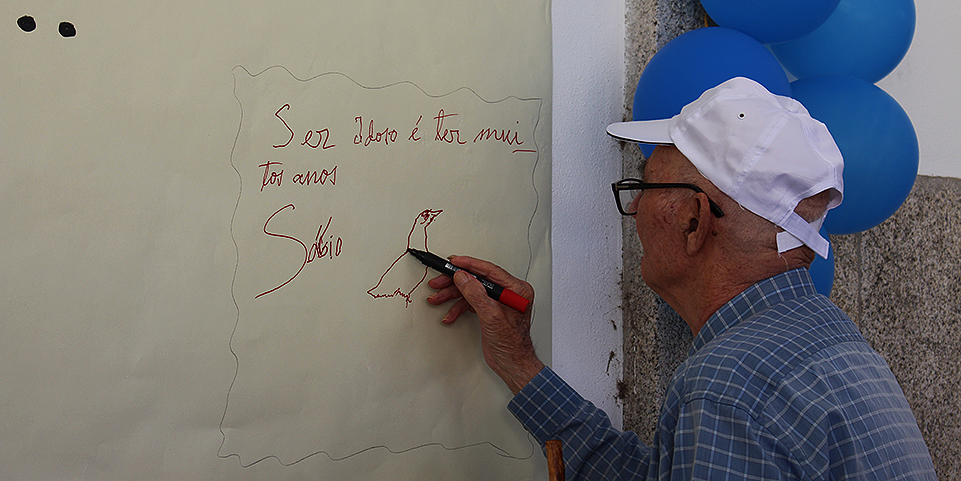 Ser Idoso é ter mui_
tos anos
Sábio